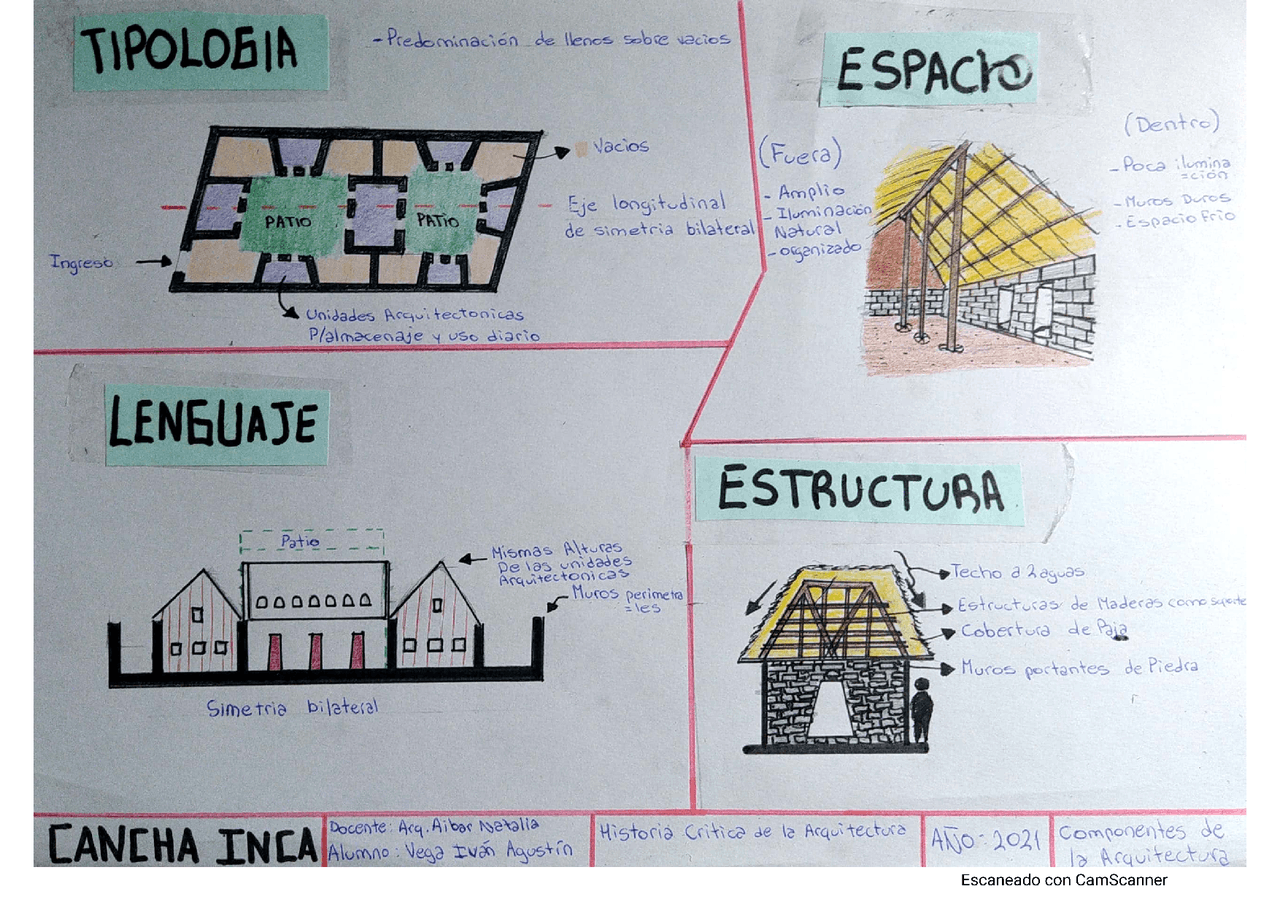 TIPOLOGIA
-Predominación de llenos sobre vacios
Vacios
PATIO
PATIO
Eje longitudinal
de simetria bilateral
Ingreso
Unidades Arquitectonicas
P/almacenaje y uso diario
ESPACIO
(Fuera)
- Amplio
- Iluminación
Natural
- organizado
(Dentro)
- Poca ilumina
=ción
- Muros Duros
- Espacio Frio
LENGUAJE
Patio
Mismas Alturas
De las unidades
Arquitectonicas
Muros perimetra
=les
Simetria bilateral
ESTRUCTURA
Techo a 2 aguas
Estructuras de Maderas como soporte
Cobertura de Paja
Muros portantes de Piedra
CANCHA INCA
Docente: Arq. Aibar Natalia
Alumno: Vega Iván Agustín
Historia Critica de la Arquitectura
AÑO: 2021
Componentes de
la Arquitectura
Escaneado con CamScanner